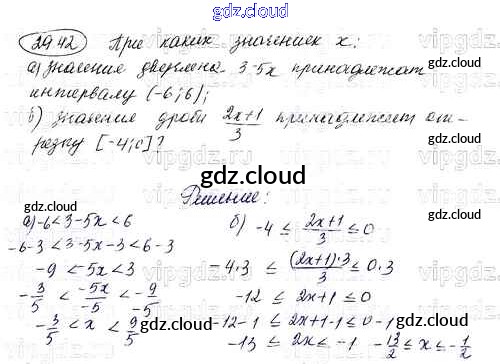 gdz.cloud
29.42 При каких значениях x:
а) значение двучлена 3-5x принадлежат
интервалу (-6; 6);
б) значение дроби \frac{2x+1}{3} принадлежает от-
резку [-4; 0]?
gdz.cloud
Решение:
а) -6 < 3-5x < 6
-6-3 < 3-5x-3 < 6-3
-9 < -5x < 3
-\frac{3}{5} < \frac{-5x}{-5} < \frac{-9}{-5}
-\frac{3}{5} < x < \frac{9}{5}
б) -4 ≤ \frac{2x+1}{3} ≤ 0
-4·3 ≤ \frac{(2x+1)·3}{3} ≤ 0·3
-12 ≤ 2x+1 ≤ 0
-12-1 ≤ 2x+1-1 ≤ 0-1
-13 ≤ 2x ≤ -1 -\frac{13}{2} ≤ x ≤ -\frac{1}{2}
gdz.cloud